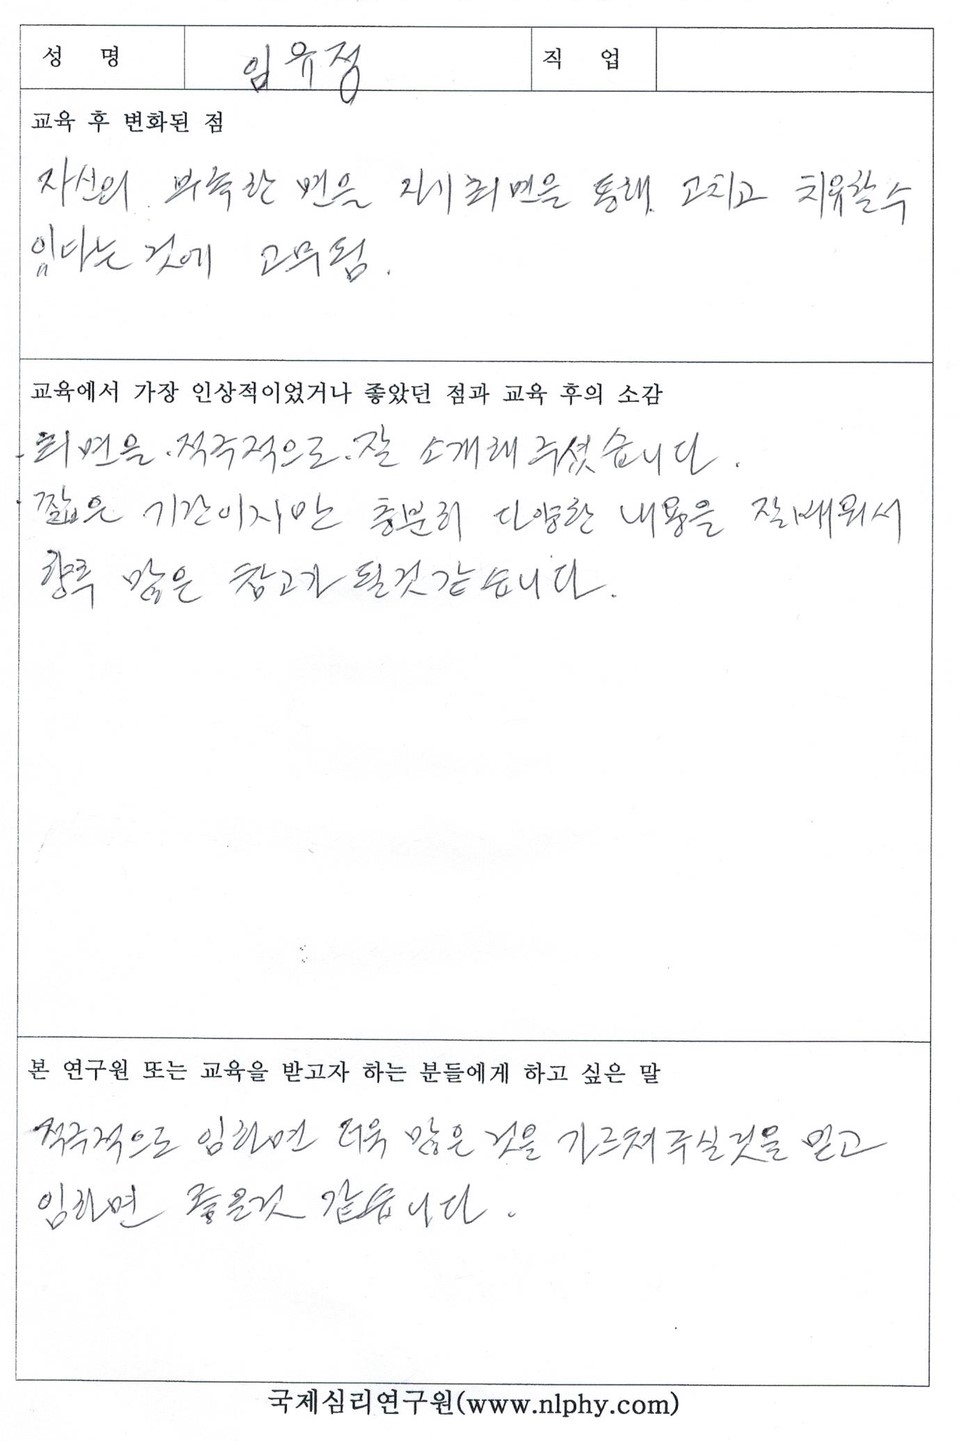 성 명 임유정 직 업
교육 후 변화된 점
자신의 부족한 면을 자기최면을 통해 고치고 치유할수
있다는 것에 고무됨.
교육에서 가장 인상적이었거나 좋았던 점과 교육 후의 소감
최면을 적극적으로 잘 소개해 주셨습니다.
짧은 기간이지만 충분히 다양한 내용을 잘 배워서
향후 많은 참고가 될것 같습니다.
본 연구원 또는 교육을 받고자 하는 분들에게 하고 싶은 말
적극적으로 임하면 더욱 많은 것을 가르쳐 주실것을 믿고
임하면 좋을것 같습니다.
국제심리연구원(www.nlphy.com)